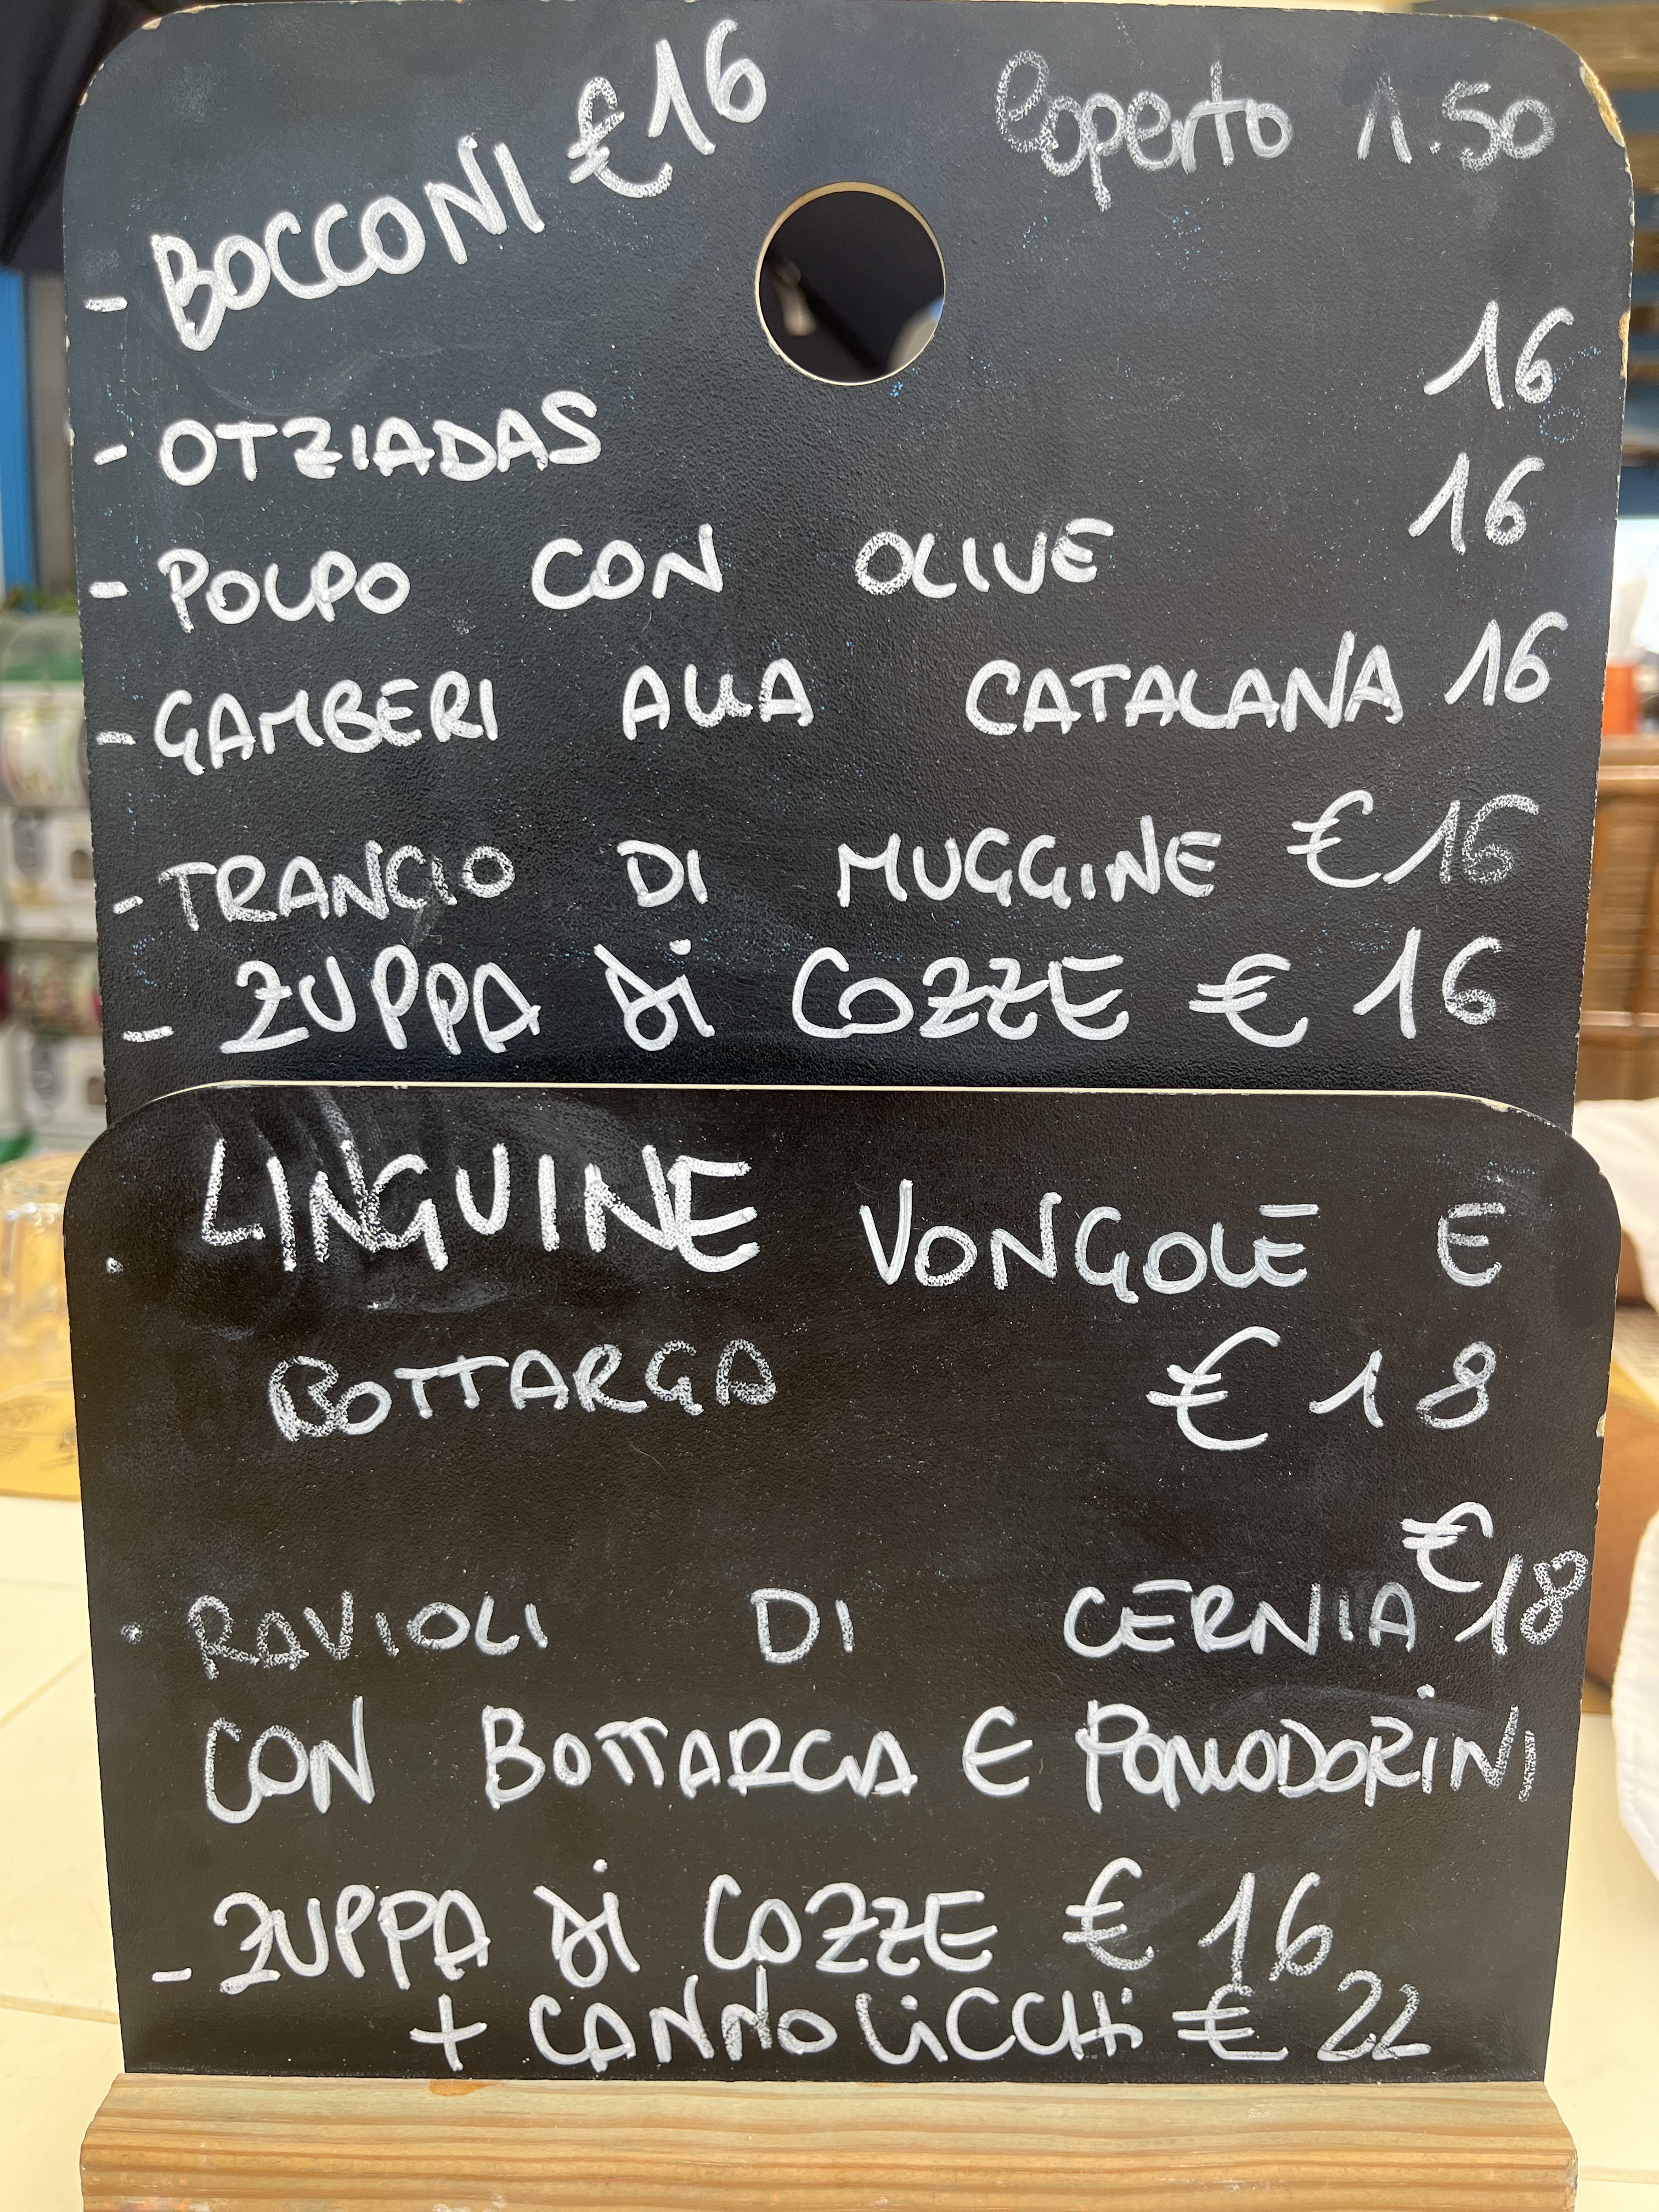 - BOCCONI €16
Coperto 1.50
- OTZIADAS 16
- POLPO CON OLIVE 16
- GAMBERI ALLA CATALANA 16
- TRANCIO DI MUGGINE €16
- ZUPPA di COZZE € 16
· LINGUINE VONGOLE E
BOTTARGA € 18
· RAVIOLI DI CERNIA €18
CON BOTTARGA E POMODORINI
- ZUPPA di COZZE € 16
+ CANNOLICCHI € 22